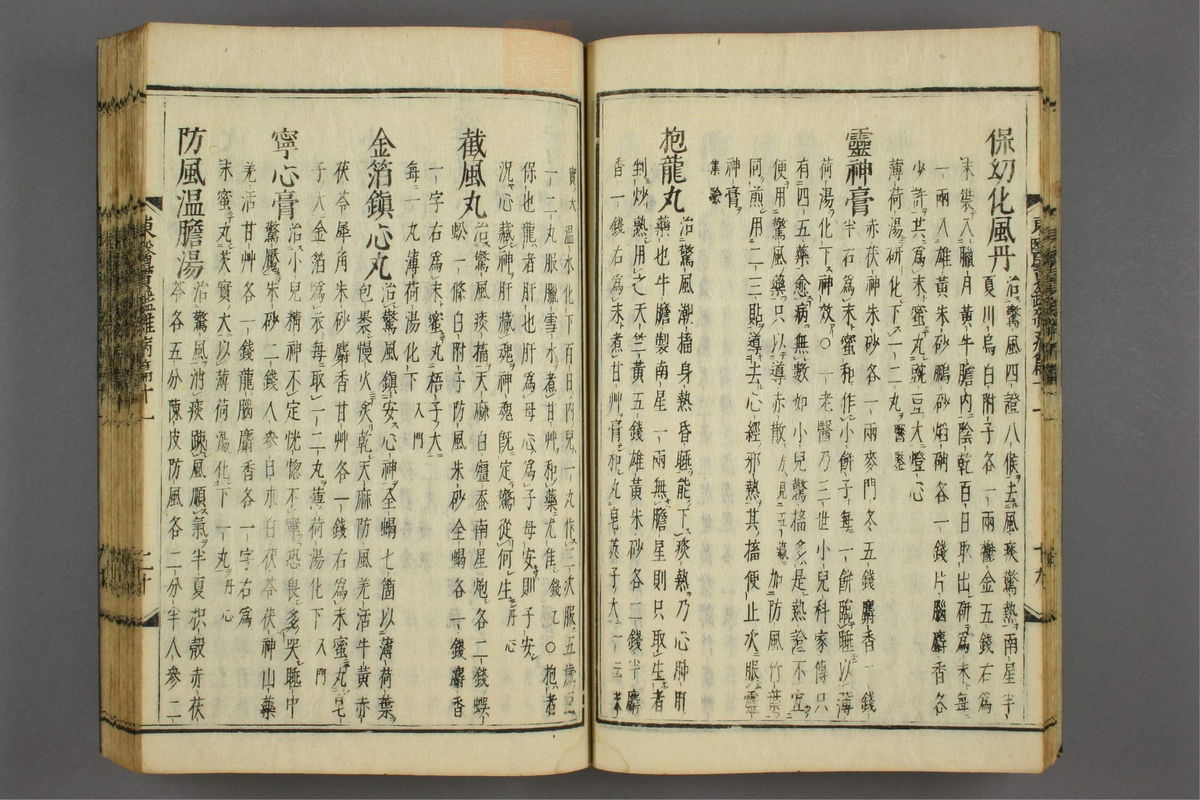 保幼化風丹 治驚風四證八候去風痰驚熱南星半
夏川烏白附子各一兩鬱金五錢右爲
末裝入臘月黃牛膽內陰乾百日取出研爲末每
一兩入雄黃朱砂鵬砂焰硝各一錢片腦麝香各
少許共爲末蜜丸豌豆大燈心
薄荷湯研化下一二丸醫鑒
靈神膏 赤茯神朱砂各一兩麥門冬五錢麝香一錢
半右末蜜和作小餅子每一餅臨睡以薄
荷湯化下神效○一老醫乃三世小兒科家傳只
有四五藥愈病無數如小兒驚搐多是熱證不宜
便用驚風藥只以導赤散方見五藏加防風竹葉
同煎用二三貼導去心經邪熱其搐便止次服靈
神膏集驗
抱龍丸 治驚風潮搐身熱昏睡能下痰熱乃心肺肝
藥也牛膽製南星一兩無膽星則只取生者
剉炒熟用之天竺黃五錢雄黃朱砂各二錢半麝
香一錢右爲末煮甘艸膏和丸皂莢子大一云芡
東醫寶鑑雜病篇十一
十九
實大溫水化下百日內兒一丸作三次服五歲兒
一二丸服臘雪水煮甘艸和藥尤佳錢乙○抱者
保也龍者肝也肝爲母心爲子母安則子安
況心藏神肝藏魂神魂旣定驚從何生丹心
截風丸 治驚風痰搐天麻白殭蠶南星炮各二錢蜈
蚣一條白附子防風朱砂全蝎各一錢麝香
一字右爲末蜜丸梧子大
每一丸薄荷湯化下入門
金箔鎭心丸 治驚風鎭安心神全蝎七箇以薄荷葉
包裹慢火炙乾天麻防風羌活牛黃赤
茯苓犀角朱砂麝香甘艸各一錢右爲末蜜丸皂
子大金箔爲衣每取一二丸薄荷湯化下入門
寧心膏 治小兒精神不定恍惚不寧恐畏多哭睡中
驚魘朱砂二錢人參白朮白茯苓茯神山藥
羌活甘艸各一錢龍腦麝香各一字右爲
末蜜丸芡實大以薄荷湯化下一丸丹心
防風溫膽湯 治驚風消痰疎風順氣半夏枳殼赤茯
苓各五分陳皮防風各二分半人參二
東醫寶鑑雜病篇十一
二十